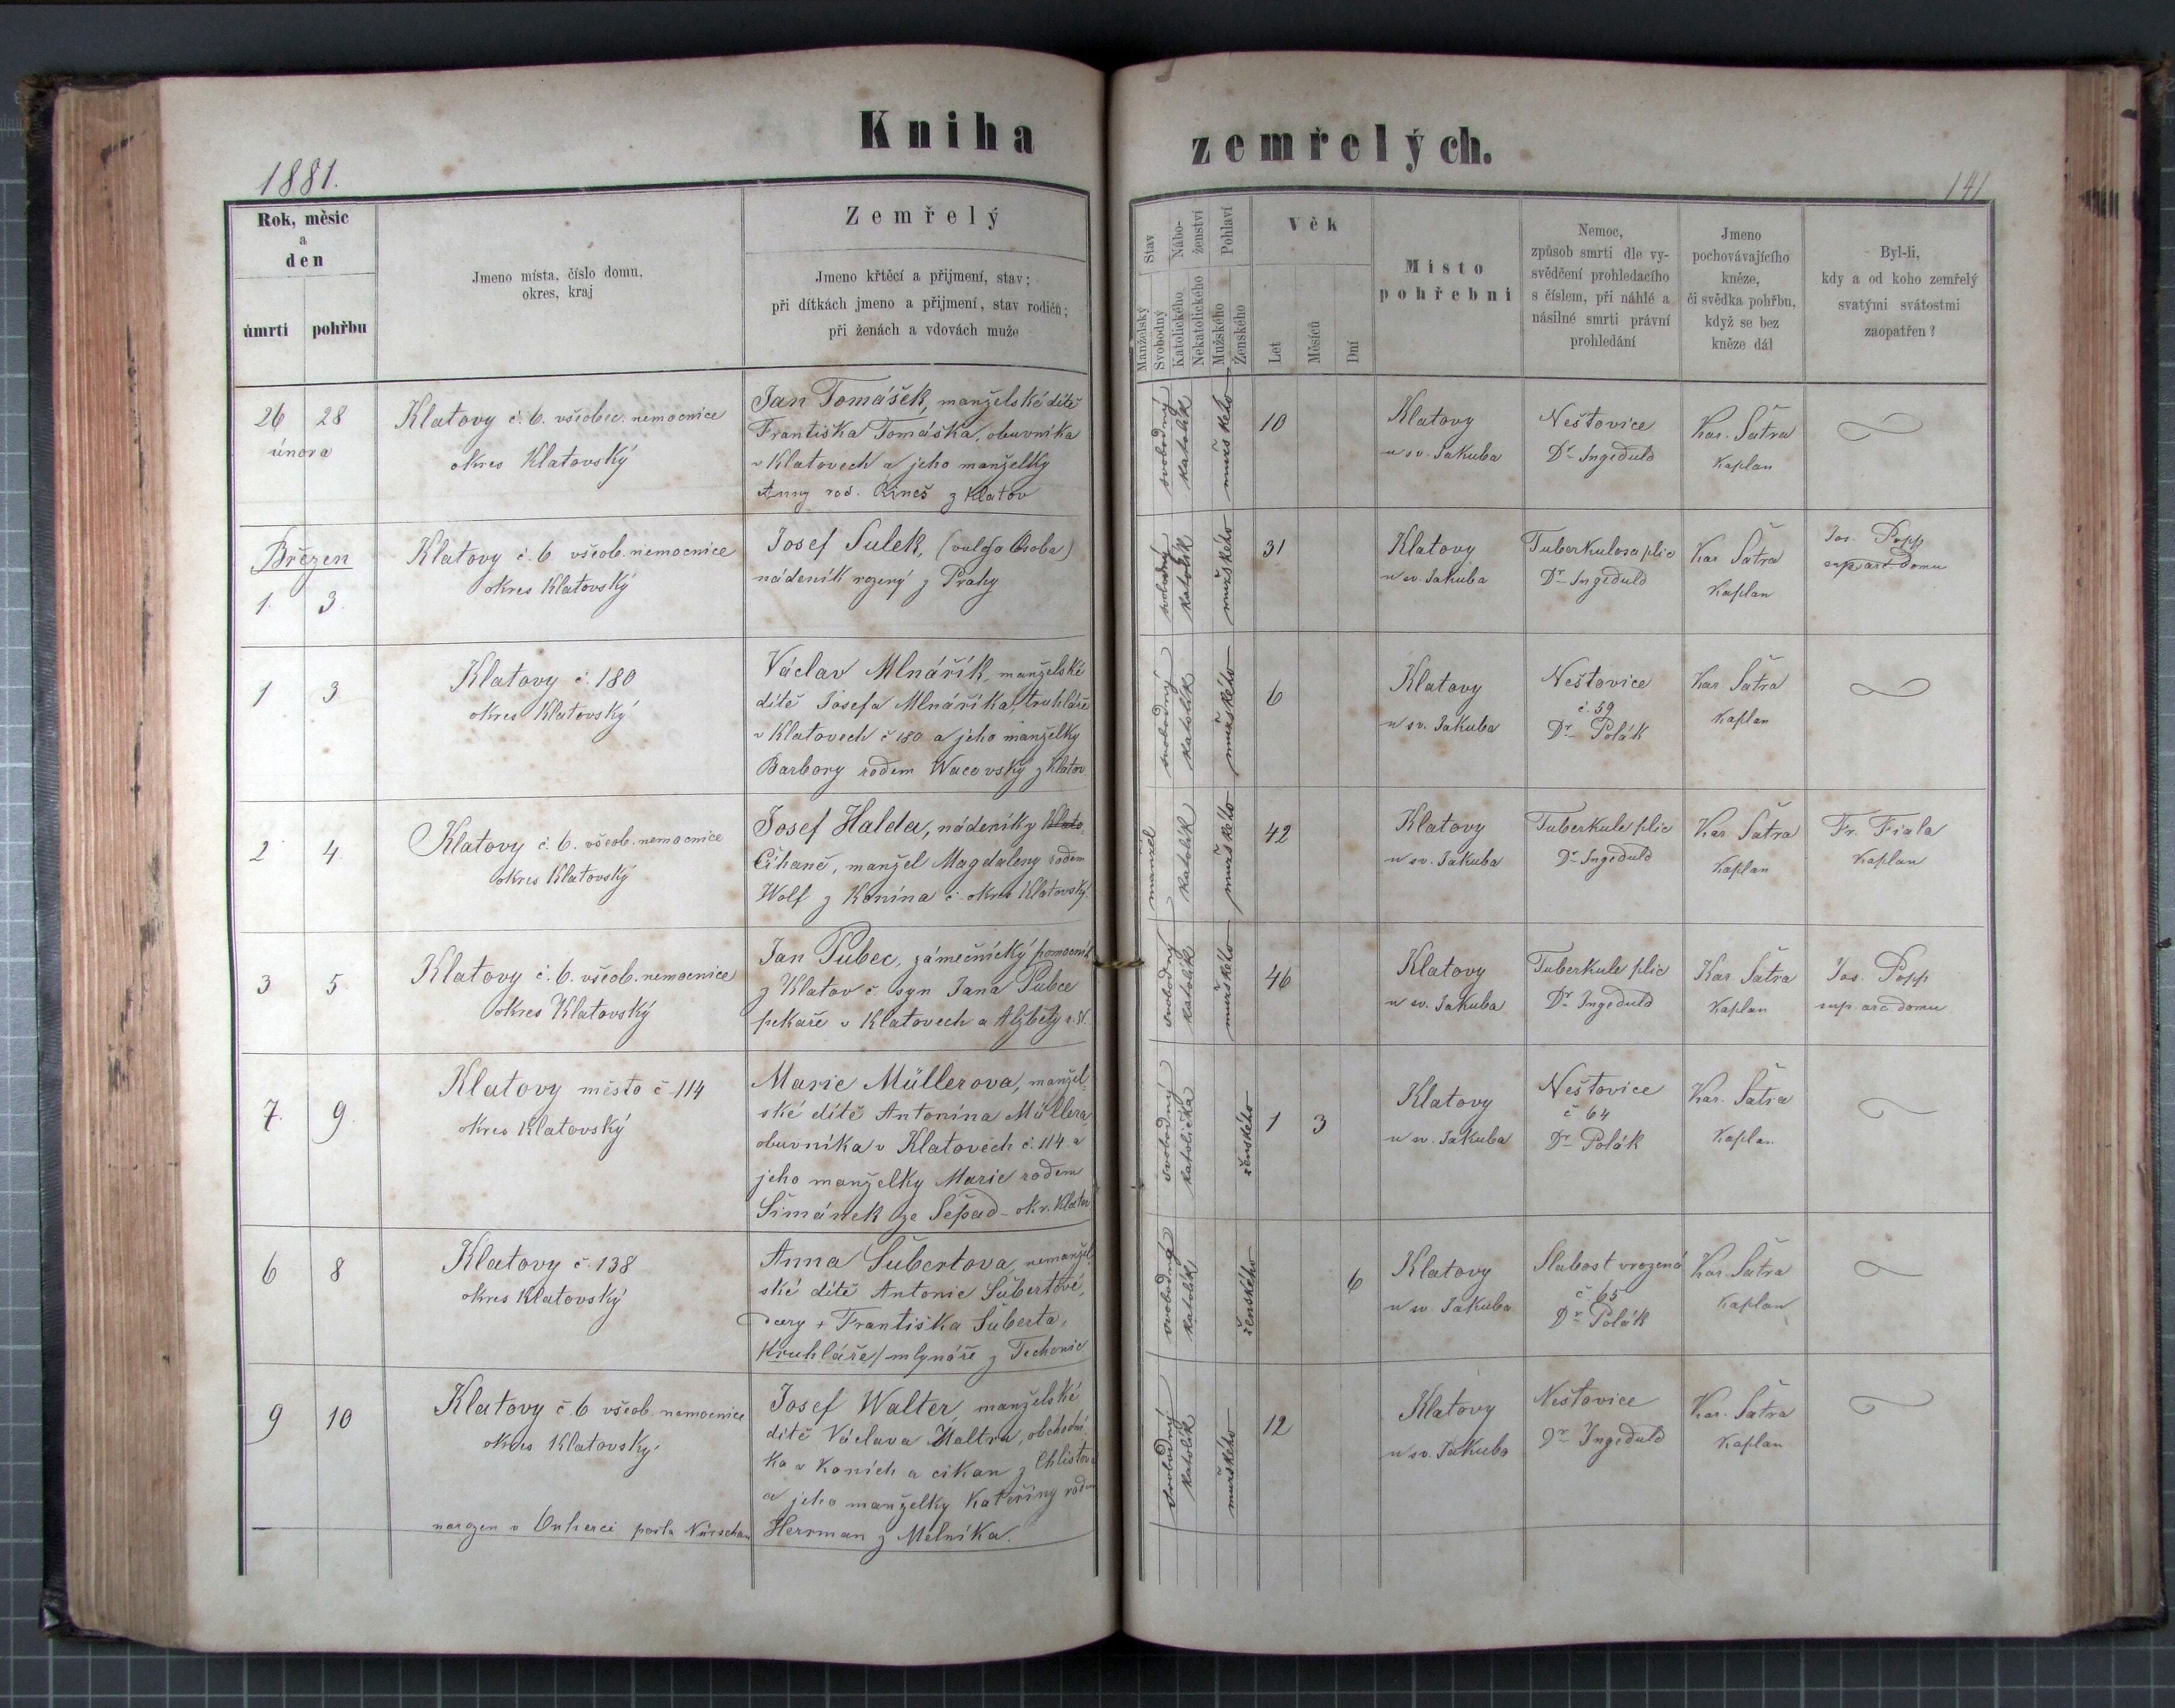 Kniha zemřelých.
1881.
141
Rok, měsíc
a
den
úmrtí
pohřbu
Jmeno místa, číslo domu,
okres, kraj
Zemřelý
Jmeno křtěcí a přijmení, stav;
při dítkách jmeno a přijmení, stav rodičů;
při ženách a vdovách muže
Stav
Manželský
Svobodný
Nábo-
ženství
Katolického
Nekatolického
Pohlaví
Mužského
Ženského
Věk
Let
Měsíců
Dní
Místo
pohřební
Nemoc,
způsob smrti dle vy-
svědčení prohledacího
s číslem, při náhlé a
násilné smrti právní
prohledání
Jmeno
pochovávajícího
kněze,
či svědka pohřbu,
když se bez
kněze dál
Byl-li,
kdy a od koho zemřelý
svatými svátostmi
zaopatřen?
26 28
února
Klatovy č. 6. všeobec. nemocnice
okres Klatovský
Jan Tomášek, manželské dítě
Františka Tomáška, obuvníka
v Klatovech a jeho manželky
Anny rod. z Klatov
svobodný
katolík
mužského
10
Klatovy
u sv. Jakuba
Neštovice
Dr Ingeduld
Kar. Šatra
Kaplan
Březen
1. 3.
Klatovy č. 6 všeob. nemocnice
okres Klatovský
Josef Sulek, (vulgo Osoba)
nádeník rozený z Prahy
svobodný
katolík
mužského
31
Klatovy
u sv. Jakuba
Tuberkulosa plic
Dr Ingeduld
Kar Šatra
Kaplan
Jos. Popp
sup. arc. Domu
1 3
Klatovy č. 180
okres Klatovský
Václav Mlnářík, manželské
dítě Josefa Mlnáříka, truhláře
v Klatovech č 180 a jeho manželky
Barbory rodem Wacovský z Klatov
svobodný
katolík
mužského
6
Klatovy
u sv. Jakuba
Neštovice
č. 59
Dr Polák
Kar Šatra
Kaplan
2 4.
Klatovy č. 6. všeob. nemocnice
okres Klatovský
Josef Halda, nádeník z Klato
Číhaně, manžel Magdaleny rodem
Wolf z Konína č okres Klatovský
manžel
katolík
mužského
42
Klatovy
u sv. Jakuba
Tuberkule plic
Dr Ingeduld
Kar Šatra
Kaplan
Fr. Fiala
Kaplan
3 5.
Klatovy č. 6. všeob. nemocnice
okres Klatovský
Jan Pubec, zámečnický pomocník
z Klatov č syn Jana Pubce
pekaře v Klatovech a Alžběty r. N.
svobodný
katolík
mužského
46
Klatovy
u sv. Jakuba
Tuberkule plic
Dr Ingeduld
Kar Šatra
Kaplan
Jos Popp
sup. arc. domu
7. 9.
Klatovy město č 114
okres Klatovský
Marie Müllerova, manžel-
ské dítě Antonína Müllera,
obuvníka v Klatovech č. 114 a
jeho manželky Marie rodem
Šimánek ze Sepad- okr. Klatov
svobodný
katolička
ženského
1 3
Klatovy
u sv. Jakuba
Neštovice
č 64
Dr Polák
Kar. Šatra
Kaplan
6 8
Klatovy č. 138
okres Klatovský
Anna Šubertova, nemanžel-
ské dítě Antonie Šubertové,
dcery + Františka Šuberta,
truhláře/mlynáře z Techonic
svobodný
katolík
ženského
6
Klatovy
u sv. Jakuba
Slabost vrozená
č 65
Dr Polák
Kar. Šatra
Kaplan
9 10
Klatovy č. 6 všeob. nemocnice
okres Klatovský
narozen v posta Nürschan
Josef Walter, manželské
dítě Václava Waltra, obchodní-
ka v koních a cikan z Chlistova
a jeho manželky Kateřiny rodem
Herrman z Mělníka.
svobodný
katolík
mužského
12
Klatovy
u sv. Jakuba
Neštovice
Dr Ingeduld
Kar. Šatra
Kaplan